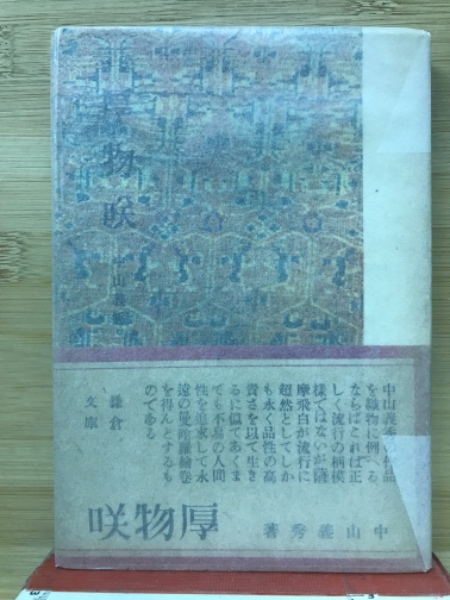 厚物咲
中山義秀
中山義秀の作品
を織物に例へる
ならばこれは正
しく流行の柄模
様ではないが薩
摩飛白が流行に
超然としてしか
も永く品性の高
貴さを以て生き
るに似てあくま
でも不易の人間
性を追求して永
遠の曼陀羅繪卷
を得んとするも
のである
鎌倉
文庫
中山義秀著
厚物咲